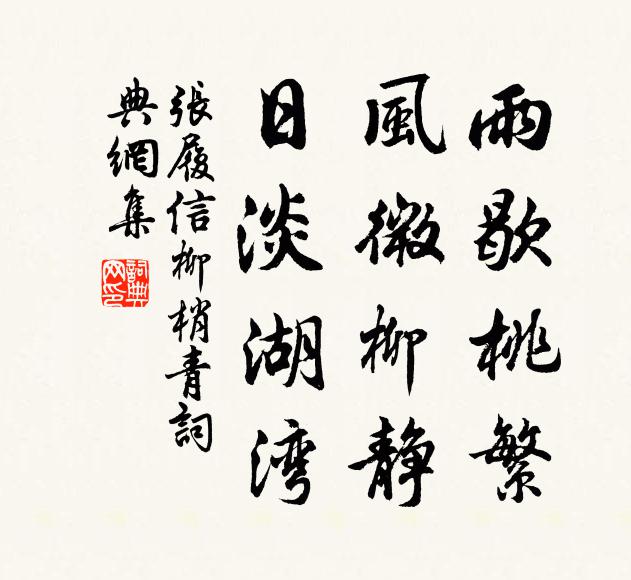 雨歇桃繁
風微柳静
日淡湖湾
張履信柳梢青詞
典網集
詞典網印